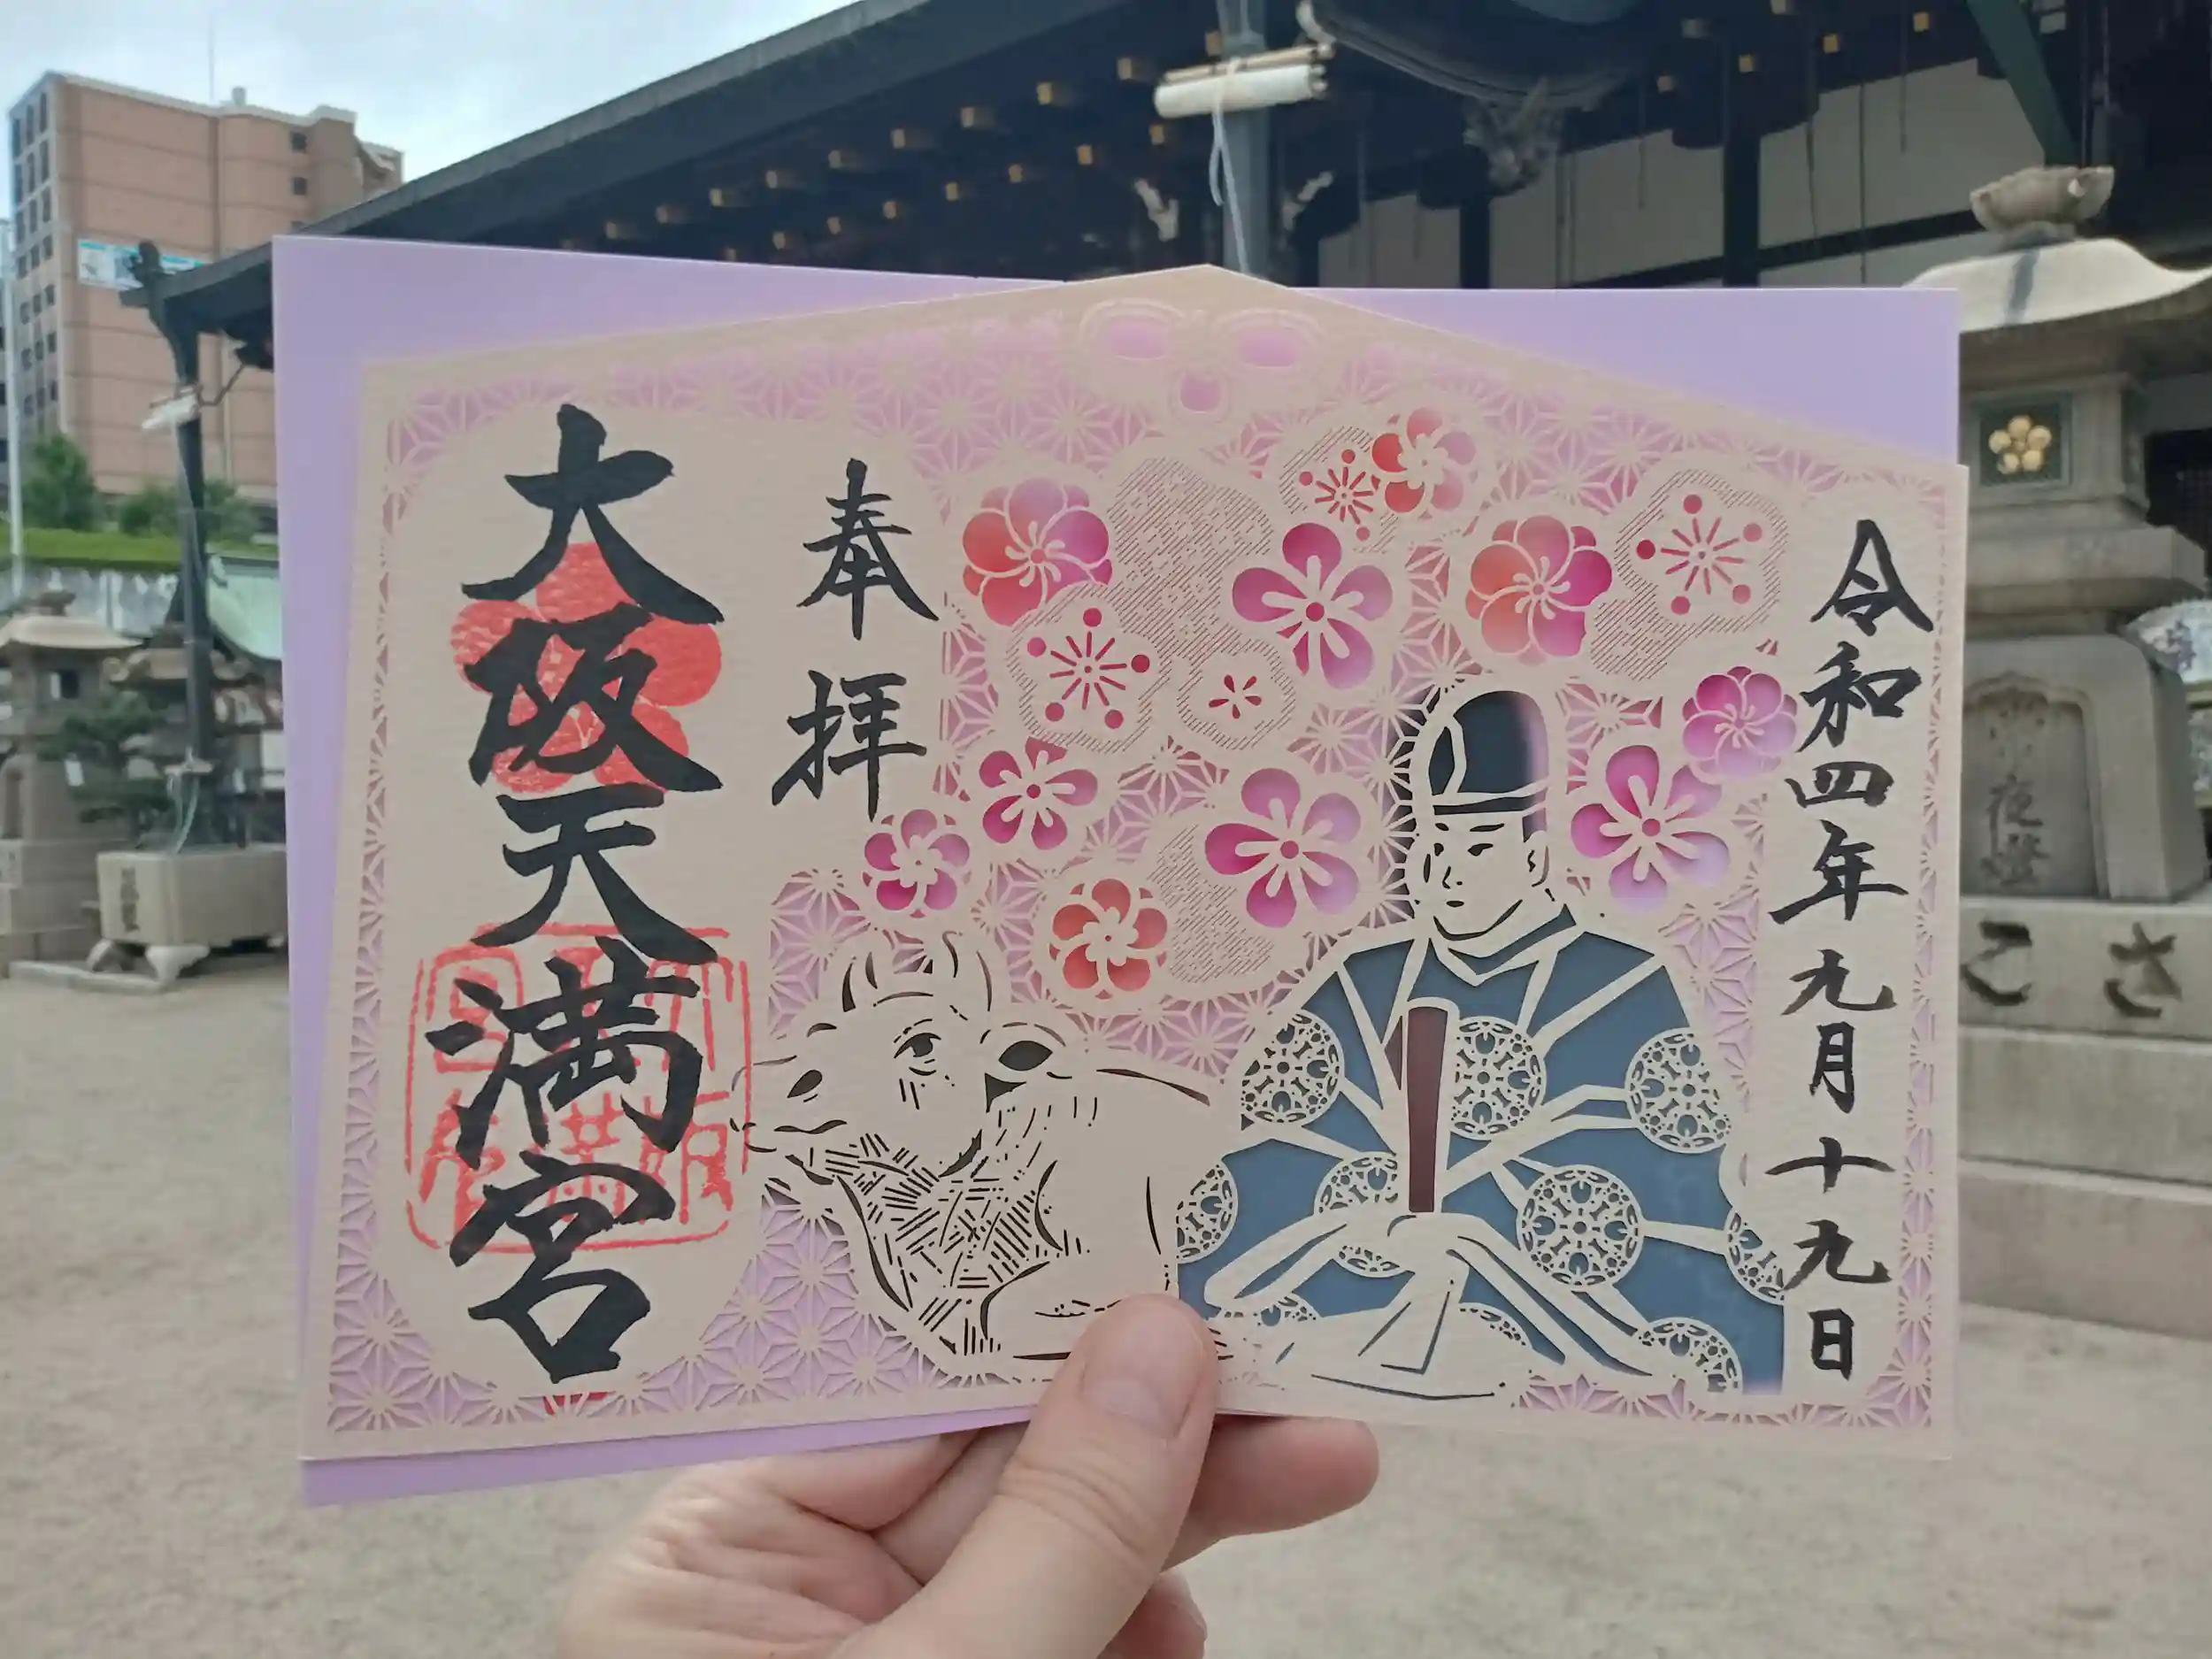 令和四年九月十九日
奉拝
大阪天満宮
夜燈
こさ